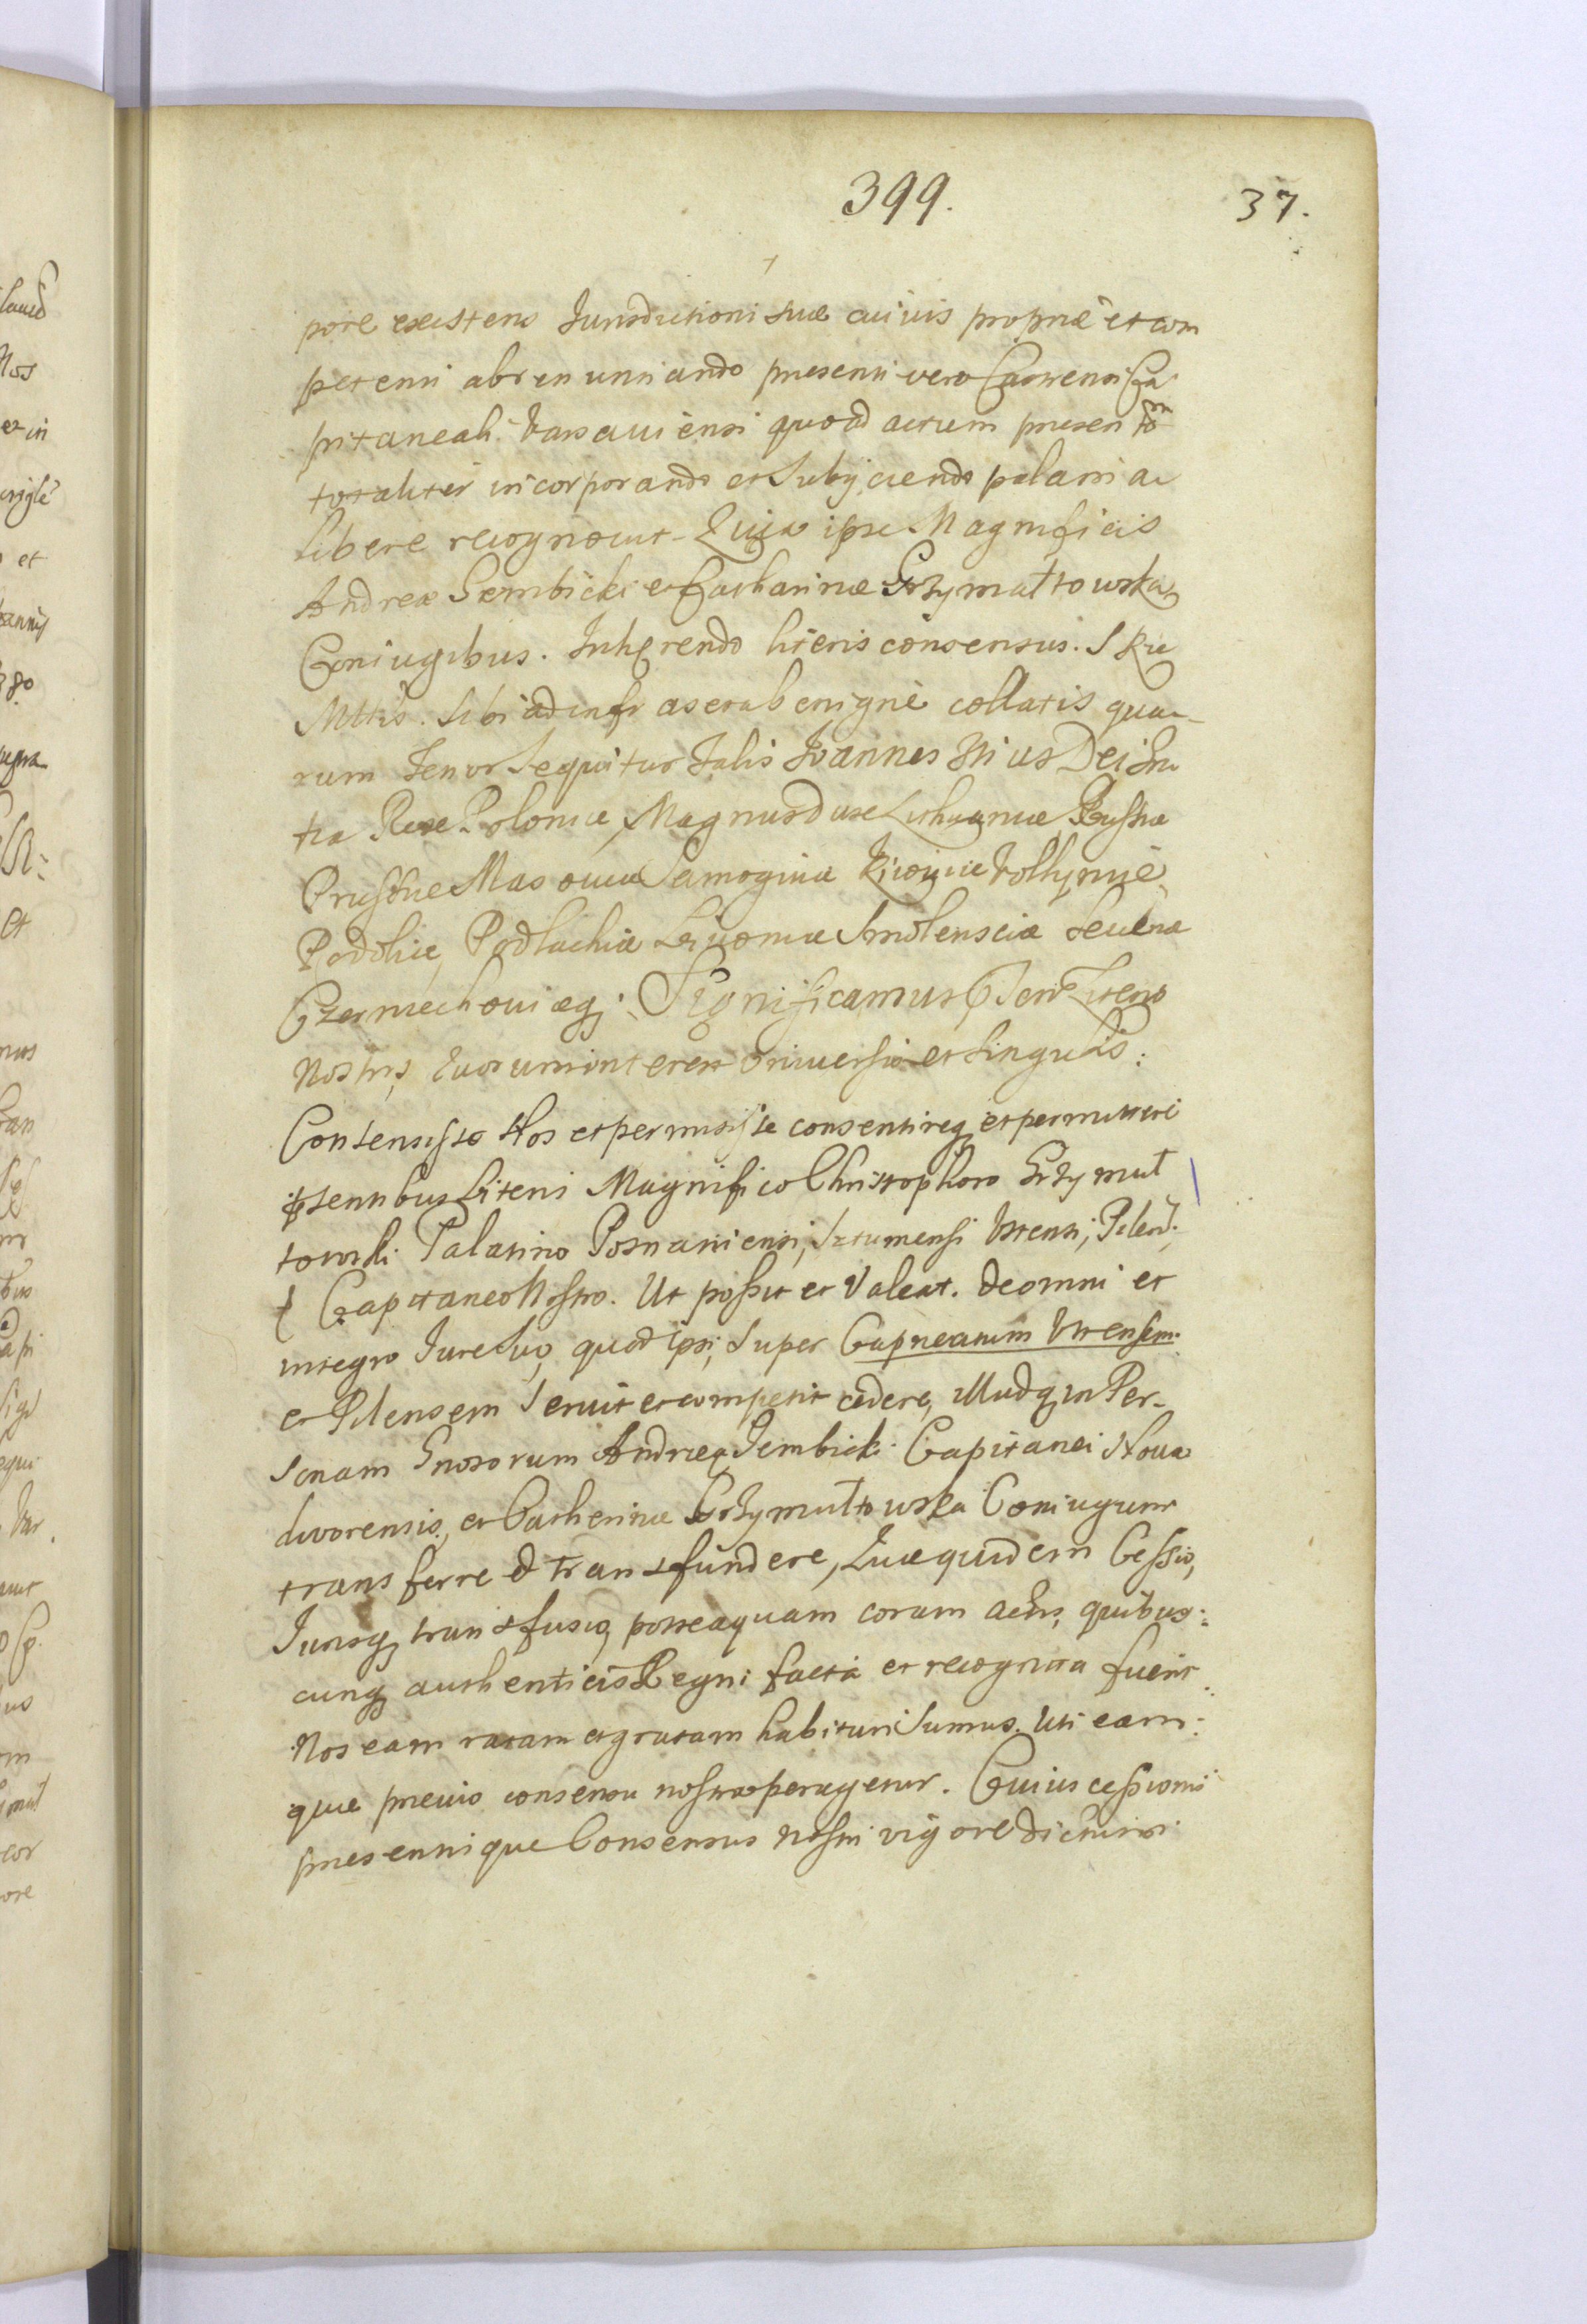 399.
37.
pore existens Jurisdictioni suæ cuivis propriæ et com
petenti abrenunciando presenti vero Castrensi Ca
pitaneali Varsaviensi quoad actum presentem
totaliter incorporando et Subijciendo palam ac
libere recognovit. Quia ipse Magnificis
Andreæ Gembicki et Catharinæ Grzymałtowska
Coniugibus. Inhærendo literis consensus. S Rie
Mttis. sibi ad infrascripta benigne collatis qua-
rum Tenor Sequitur Talis Joannes IIIius Dei Gra
tia Rex Poloniæ, Magnus dux Lithuaniæ Russiæ
Prussiæ Masoviæ Samogitiæ Kijoviæ Volhyniæ
Podoliæ Podlachiæ Livoniæ Smolensciæ Severiæ
Czerniechoviæq; Significamus Literis
Nostris, Quorum interest Universis et Singulis.
Consensisse Nos et permisisse consentireq; et permittere
pntibus Literis Magnifico Christophoro Grzymuł
towski Palatino Posnaniensi, Sztumensi Ustensi, Pilen:
Capitaneo Nostro. Ut possit et Valeat. de omni et
integro Jure Suo, quod ipsi, Super Capneatum Ustensem
et Pilensem Servit et competit cedere, illudq; in Per-
sonam Gnosorum Andreæ Gembicki Capitanei Nova
dworensis, et Catherinæ Grzymułtowska Coniugum
transferre & transfundere, Quæquidem Cessio,
Jurisq; transfusio, posteaquam coram actis, quibus:
cunq; authenticis Regni facta et recognita fuerit
Nos eam ratam et gratam habituri Sumus. Uti eam:
que previo consensu nostro peragetur. Cuius cessionis
presentisque Consensus Nostri vigore dicti